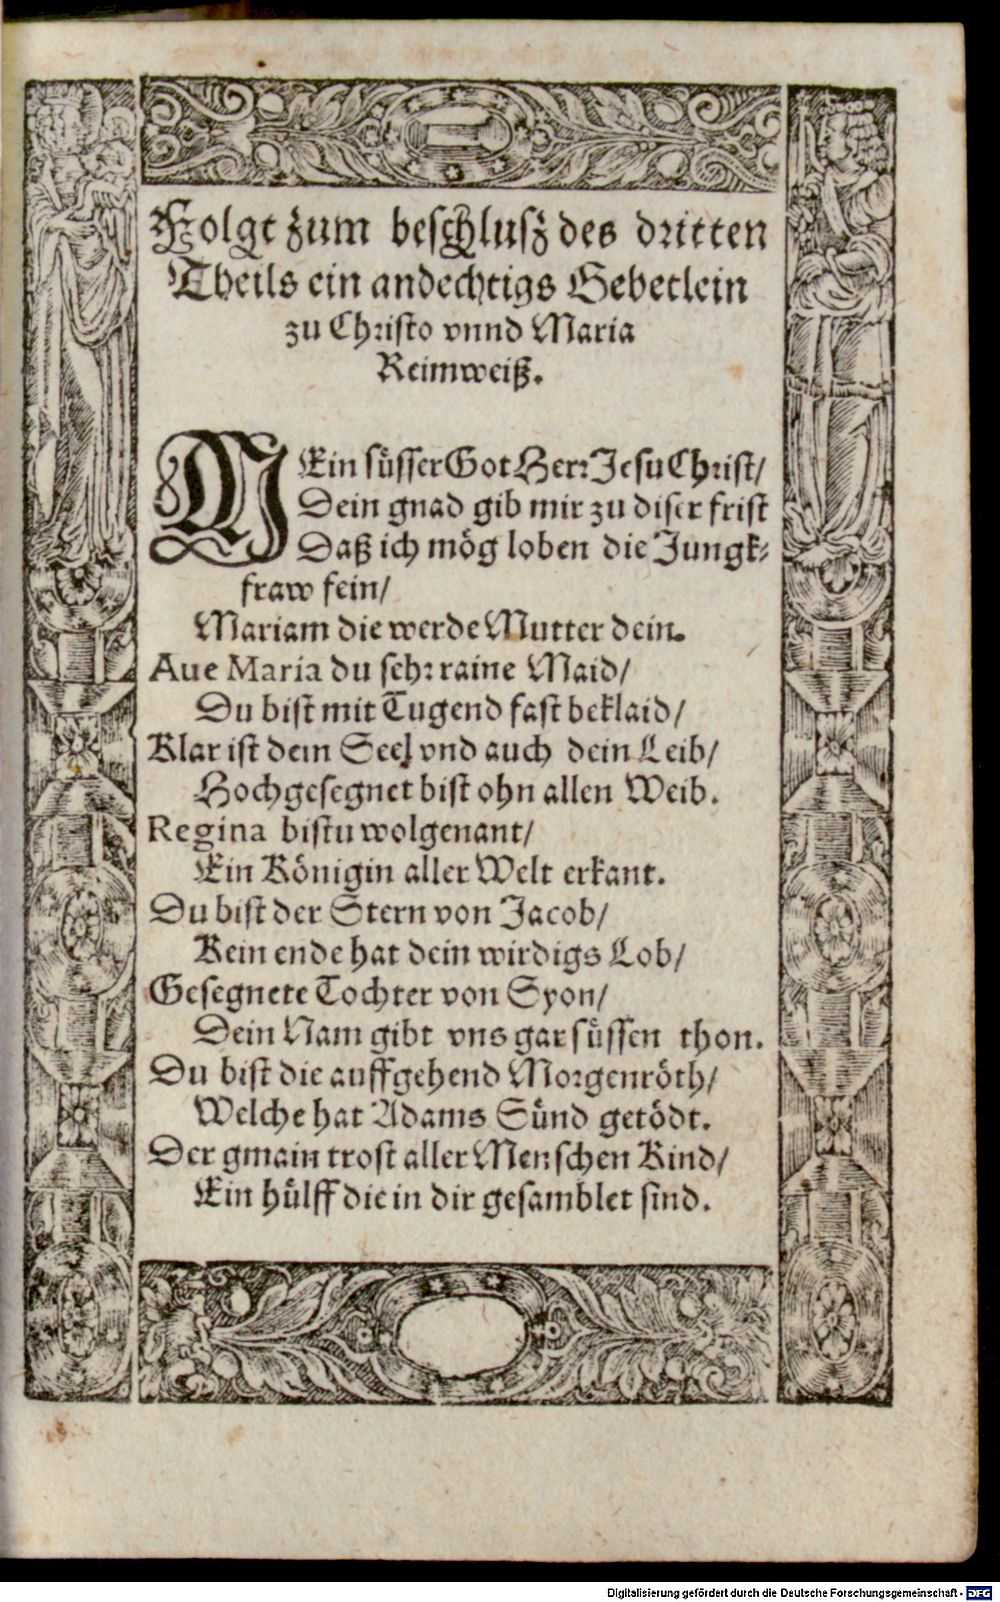 Folgt zum beschlusz des dritten
Theils ein andechtigs Gebetlein
zu Christo vnnd Maria
Reimweiß.
MEin süsser Got Herr Jesu Christ/
Dein gnad gib mir zu diser frist
Daß ich mög loben die Jungk-
fraw fein/
Mariam die werde Mutter dein.
Aue Maria du sehr raine Maid/
Du bist mit Tugend fast beklaid/
Klar ist dein Seel vnd auch dein Leib/
Hochgesegnet bist ohn allen Weib.
Regina bistu wolgenant/
Ein Königin aller Welt erkant.
Du bist der Stern von Jacob/
Kein ende hat dein wirdigs Lob/
Gesegnete Tochter von Syon/
Dein Nam gibt vns gar süssen thon.
Du bist die auffgehend Morgenröth/
Welche hat Adams Sünd getödt.
Der gmain trost aller Menschen Kind/
Ein hülff die in dir gesamblet sind.
Digitalisierung gefördert durch die Deutsche Forschungsgemeinschaft - DFG